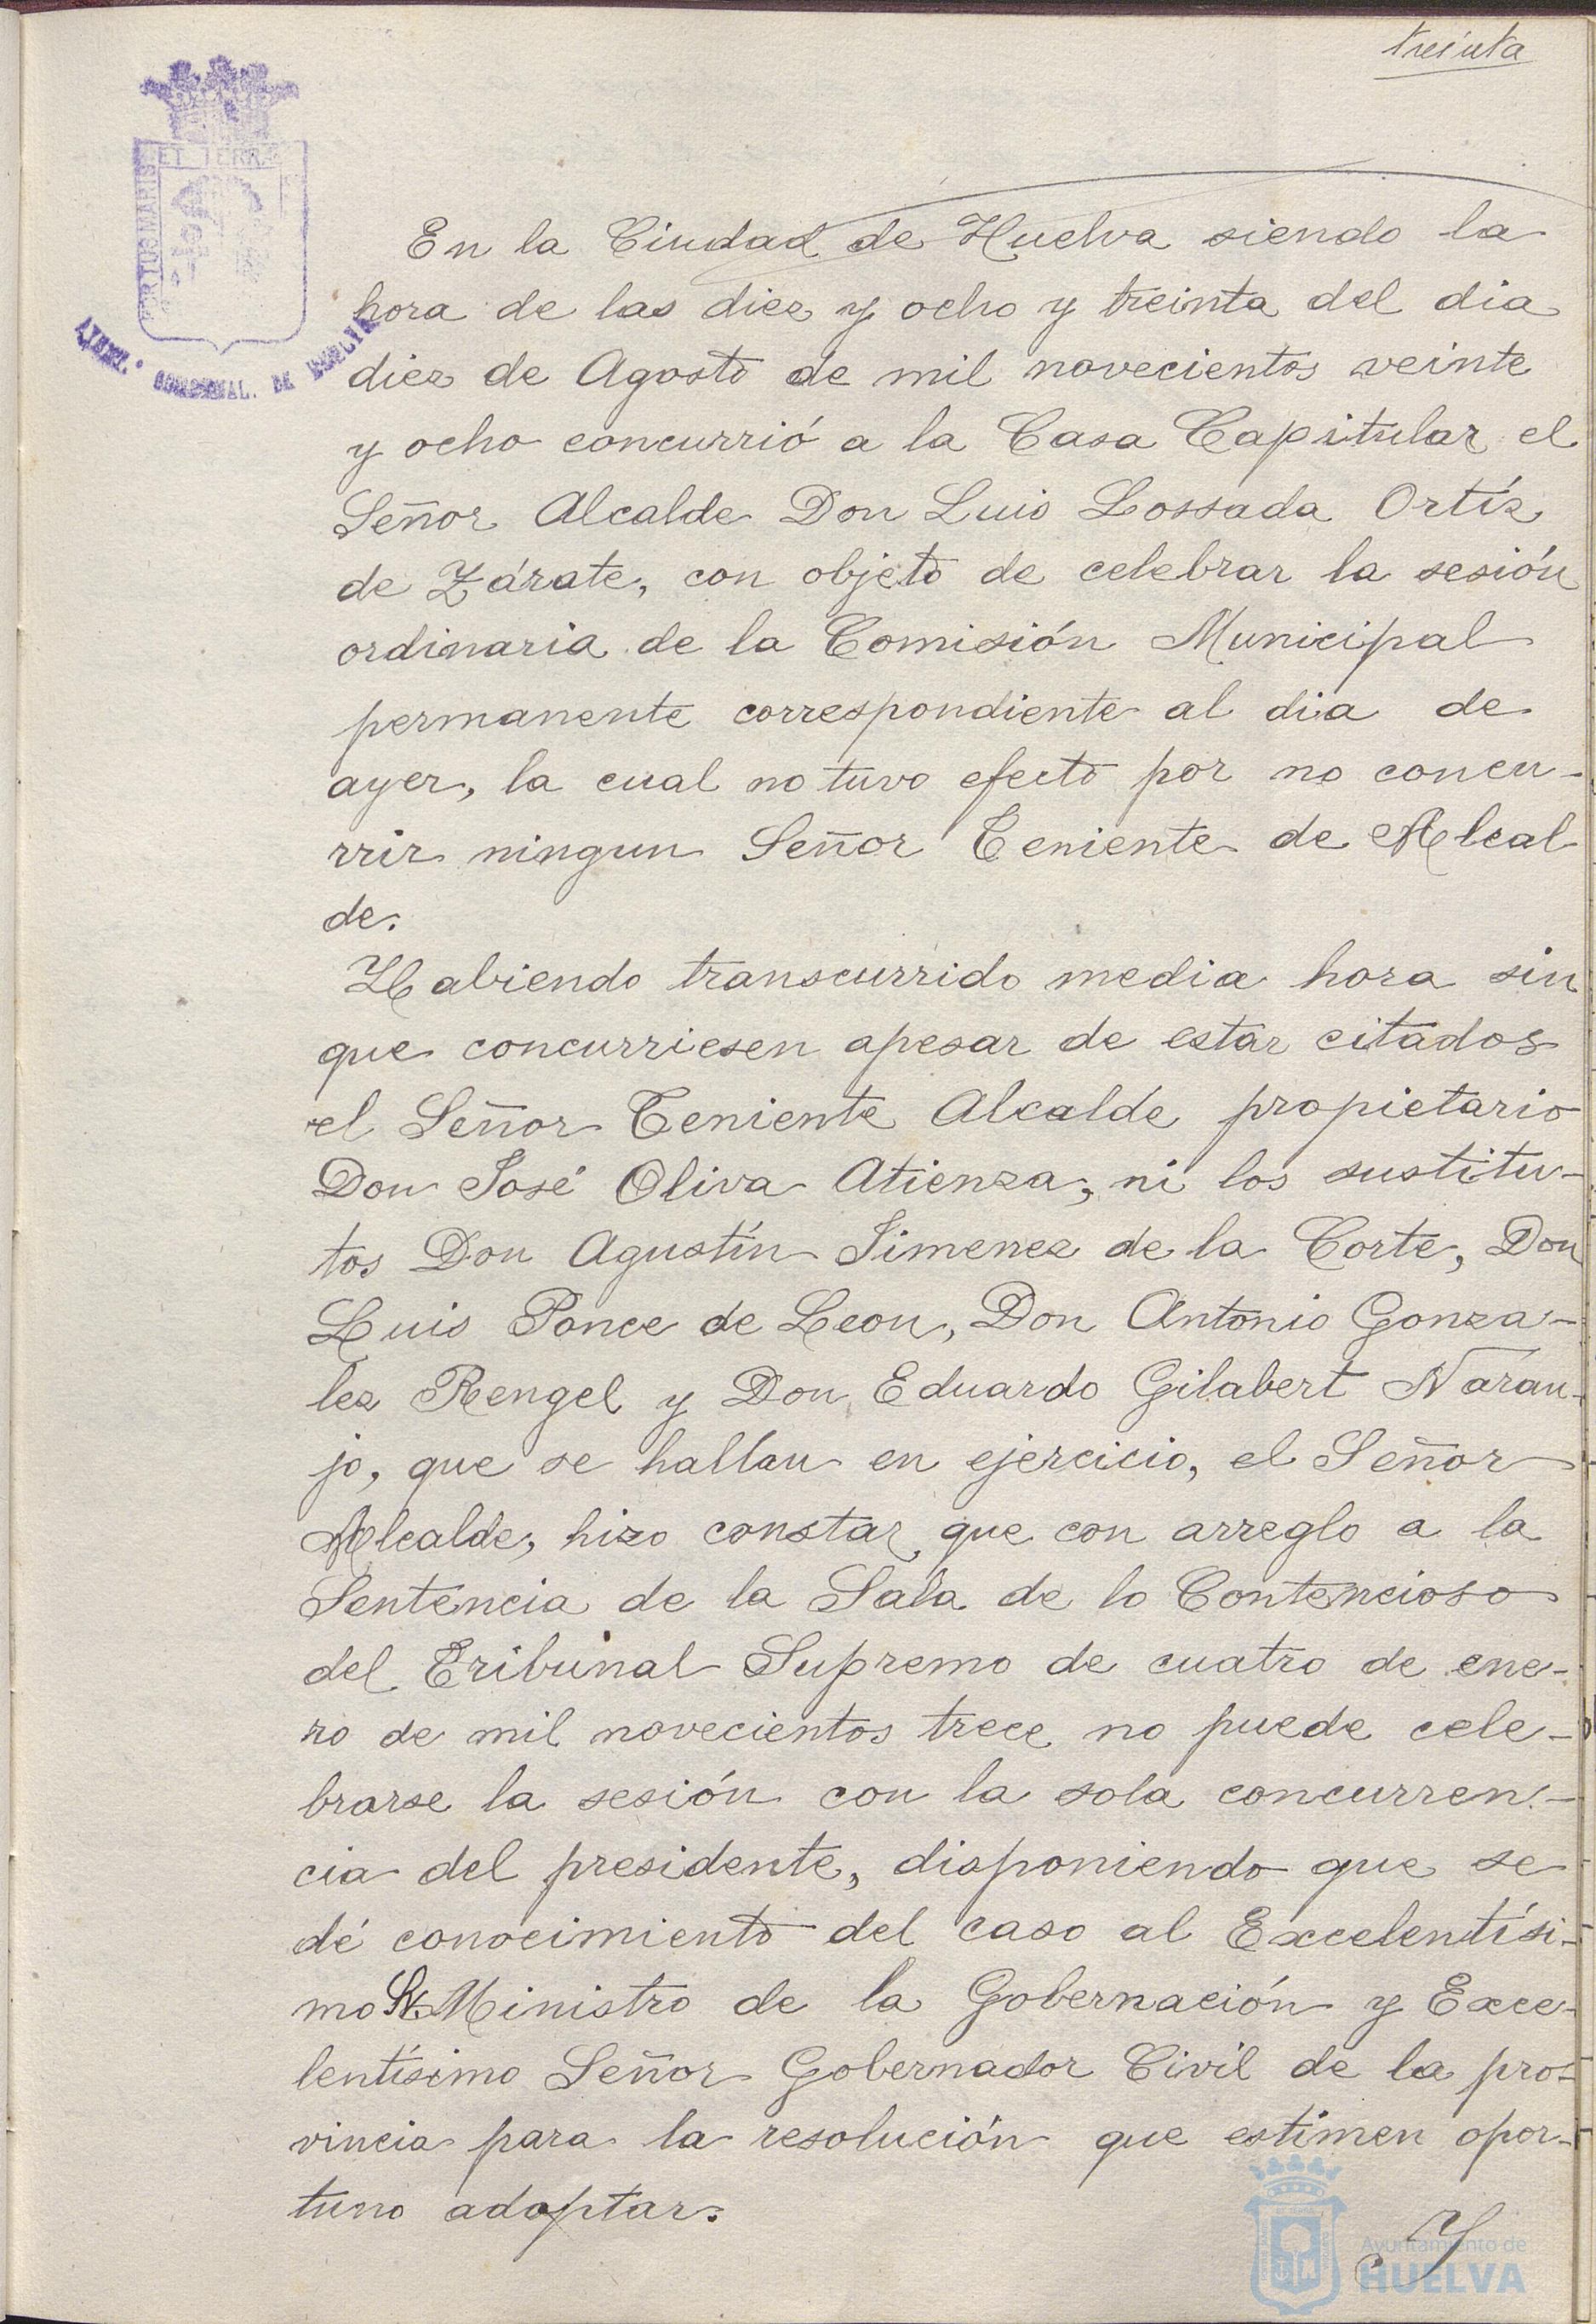 treinta
PORTUS MARIS ET TERRÆ
AYUNT.º CONSTITUCIONAL. DE HUELVA
En la Ciudad de Huelva siendo la
hora de las diez y ocho y treinta del dia
diez de Agosto de mil novecientos veinte
y ocho concurrió a la Casa Capitular el
Señor Alcalde Don Luis Lossada Ortíz
de Zárate, con objeto de celebrar la sesión
ordinaria de la Comisión Municipal
permanente correspondiente al dia de
ayer, la cual no tuvo efecto por no concu-
rrir ningun Señor Teniente de Alcal
de.
Habiendo transcurrido media hora sin
que concurriesen apesar de estar citados
el Señor Teniente Alcalde propietario
Don José Oliva Atienza, ni los sustitu-
tos Don Agustín Jimenez de la Corte, Don
Luis Ponce de Leon, Don Antonio Gonza-
lez Rengel y Don Eduardo Gilabert Naran-
jo, que se hallan en ejercicio, el Señor
Alcalde, hizo constar que con arreglo a la
Sentencia de la Sala de lo Contencioso
del Tribunal Supremo de cuatro de ene-
ro de mil novecientos trece no puede cele-
brarse la sesión con la sola concurren-
cia del presidente, disponiendo que se
dé conocimiento del caso al Excelentísi-
mo Sr. Ministro de la Gobernación y Exce-
lentísimo Señor Gobernador Civil de la pro-
vincia para la resolución que estimen opor-
tuno adoptar.
Y
Ayuntamiento de
HUELVA